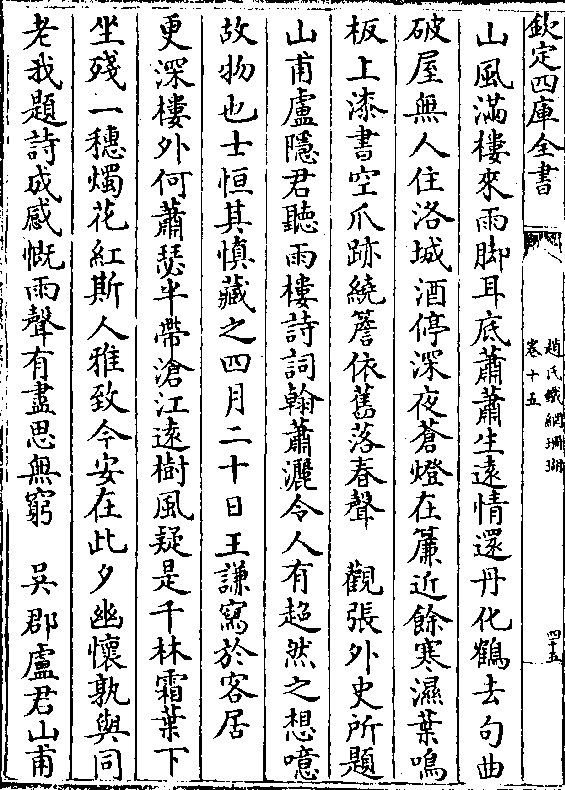 欽定四庫全書
趙氏鐵網珊瑚
卷十五
四十五
山風滿樓來雨脚耳底蕭蕭生遠情還丹化鶴去句曲
破屋無人住洛城酒停深夜蒼燈在簾近餘寒濕葉鳴
板上漆書空爪跡繞簷依舊落春聲　觀張外史所題
山甫盧隱君聽雨樓詩詞翰蕭灑令人有超然之想噫
故物也士恒其慎藏之四月二十日王謙寫於客居
更深樓外何蕭瑟半帶滄江遠樹風疑是千林霜葉下
坐殘一穗燭花紅斯人雅致今安在此夕幽懷孰與同
老我題詩成感慨雨聲有盡思無窮　吳郡盧君山甫